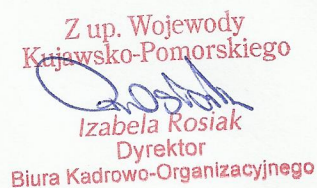 Z up. Wojewody
Kujawsko-Pomorskiego
Izabela Rosiak
Dyrektor
Biura Kadrowo-Organizacyjnego